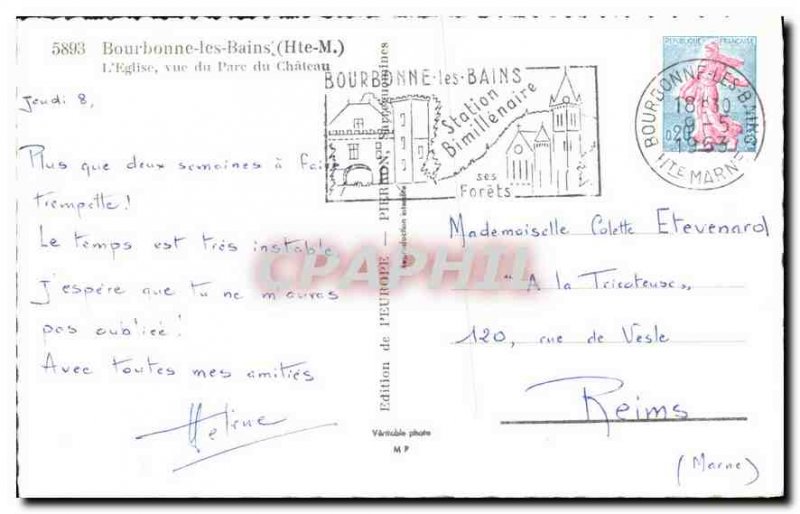 5893 Bourbonne-les-Bains (Hte-M.)
L'Eglise, vue du Parc du Château
Jeudi 8,
Plus que deux semaines à faire
trempette!
Le temps est très instable
J'espère que tu ne m'auras
pas oubliée!
Avec toutes mes amitiés
Hélène
Edition de l'EUROPE — PIERRON,
Véritable photo
M P
BOURBONNE-les-BAINS
Station
Bimillénaire
ses
Forêts
REPUBLIQUE FRANÇAISE
0,20
BOURBONNE-LES-BAINS
18H30
9-5
1963
HTE MARNE
Mademoiselle Colette Etevenard
"A la Tricoteuse"
120, rue de Vesle
Reims
(Marne)
CPAPHIL